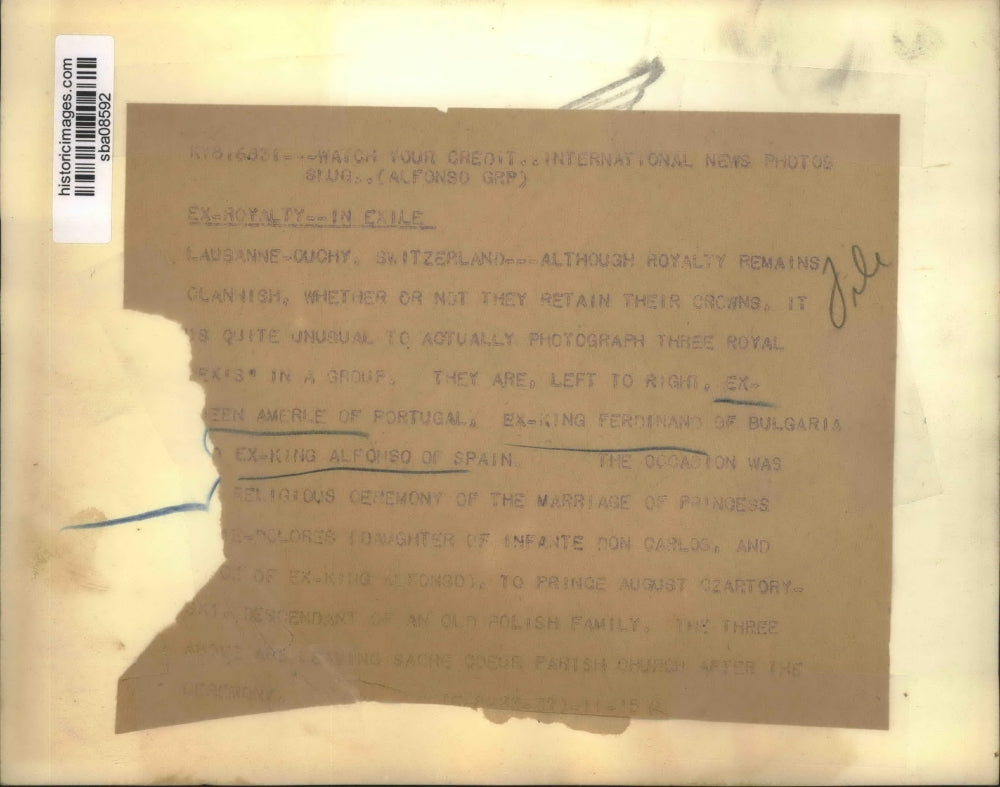 historicimages.com
sba08592
WATCH YOUR CREDIT..INTERNATIONAL NEWS PHOTOS
SLUG..(ALFONSO GRP)
EX-ROYALTY--IN EXILE
LAUSANNE-OUCHY, SWITZERLAND---ALTHOUGH ROYALTY REMAINS
File
CLANNISH, WHETHER OR NOT THEY RETAIN THEIR CROWNS, IT
IS QUITE UNUSUAL TO ACTUALLY PHOTOGRAPH THREE ROYAL
"EXIS" IN A GROUP. THEY ARE, LEFT TO RIGHT, EX-
EEN AMERLE OF PORTUGAL, EX-KING FERDINAND OF BULGARIA
EX-KING ALFONSO OF SPAIN. THE OCCASION WAS
RELIGIOUS CEREMONY OF THE MARRIAGE OF PRINCESS
E-DOLORES (DAUGHTER OF INFANTE DON CARLOS, AND
OF EX-KING ALFONSO), TO PRINCE AUGUST CZARTORY-
SKI, DESCENDANT OF AN OLD POLISH FAMILY. THE THREE
ABOVE ARE LEAVING SACRE COEUR PARISH CHURCH AFTER THE
CEREMONY.